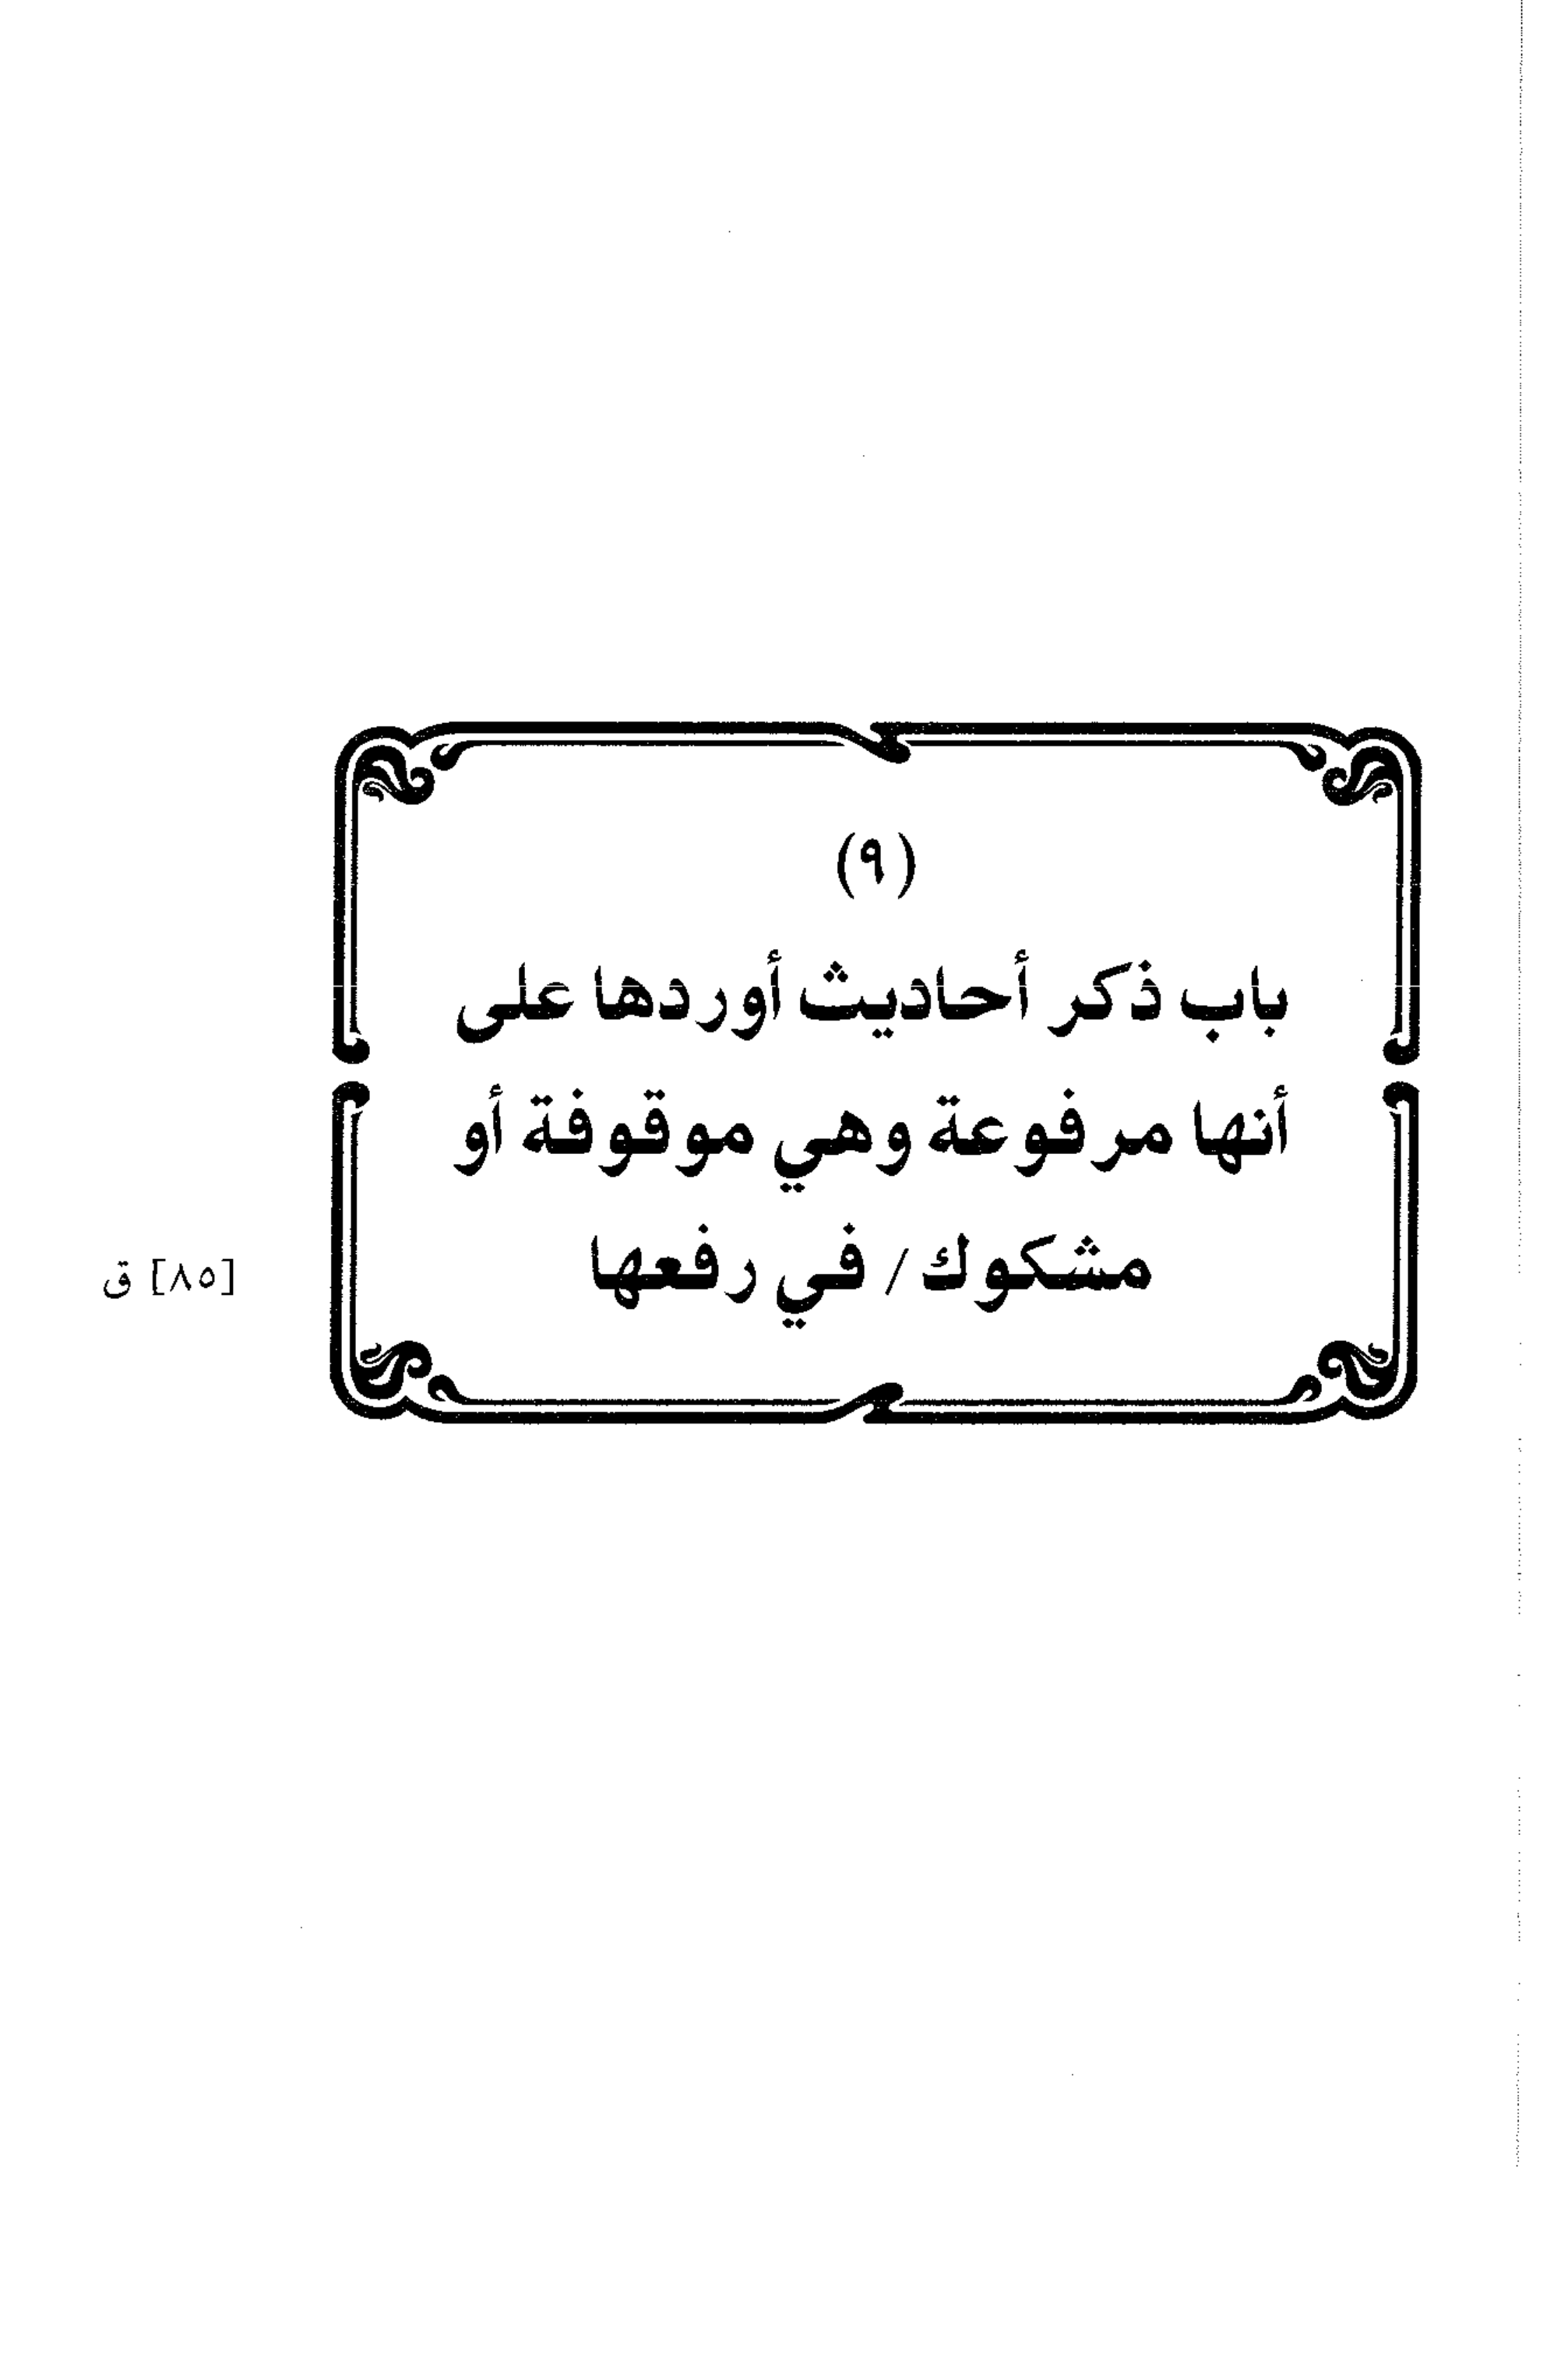 (٩)
باب ذكر أحاديث أوردها على
أنها مرفوعة وهي موقوفة أو
مشكوك/ في رفعها
[٨٥] ق